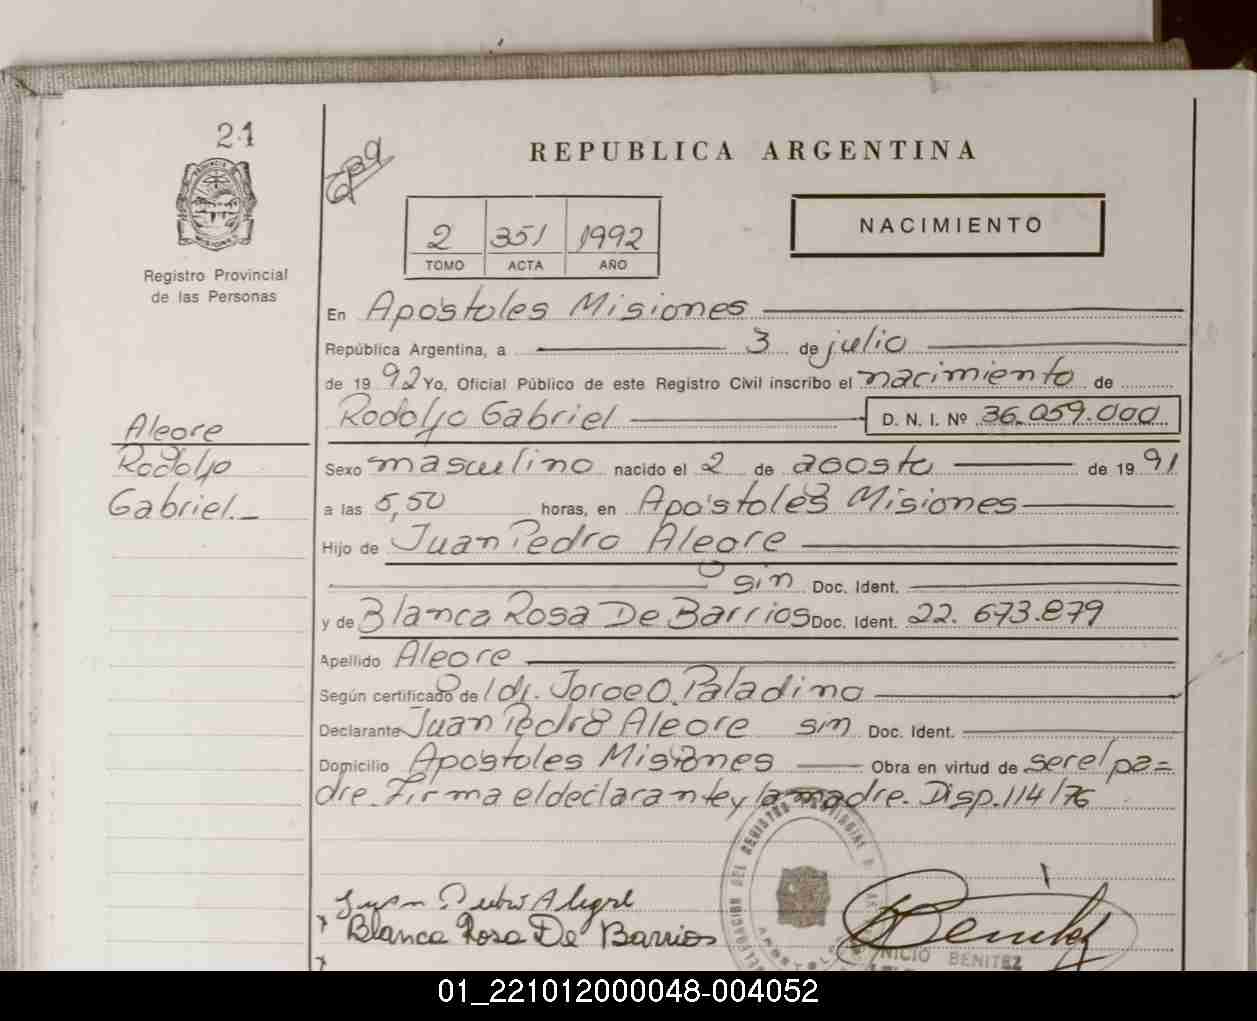 21
REPUBLICA ARGENTINA
NACIMIENTO
2 351 1992
TOMO ACTA AÑO
Registro Provincial
de las Personas
En Apóstoles Misiones
República Argentina, a 3 de julio
de 19 92 Yo, Oficial Público de este Registro Civil inscribo el nacimiento de
Rodolfo Gabriel D. N. I. Nº 36.059.000
Alegre
Rodolfo
Gabriel.
Sexo masculino nacido el 2 de agosto de 19 91
a las 5,50 horas, en Apóstoles Misiones
Hijo de Juan Pedro Alegre
sin Doc. Ident.
y de Blanca Rosa De Barrios Doc. Ident. 22.673.879
Apellido Alegre
Según certificado de l dr. Jorge O. Paladino
Declarante Juan Pedro Alegre sin Doc. Ident.
Domicilio Apóstoles Misiones Obra en virtud de ser el pa=
dre. Firma el declarante y la madre. Disp. 114/76
Juan Pedro Alegre
Blanca Rosa De Barrios
Benitez
NICIO BENITEZ
01_221012000048-004052